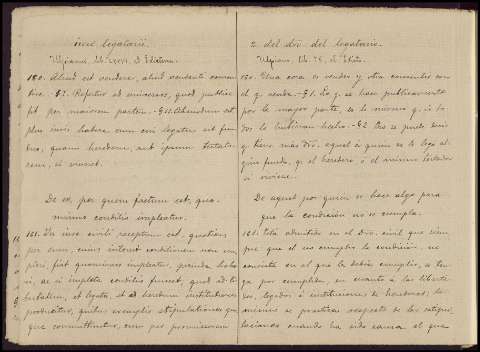 ivell legatarii.
Ulpianus, lib. LXXVI, ad Edictum.
160. Aliud est vendere, aliud vendenti consen-
tire. §1. Refertur ad universos, quod publice
fit per maiorem partem.
plus iuris habere eum cui legatus sit fun-
dus, quam heredem, aut ipsum testato-
rem, si viveret.
De eo, per quem factum est, quo-
minus conditio impleatur.
161. In iure civili receptum est, quotiens
per eum, cuius interest conditionem non im-
pleri, fiat quominus impleatur, perinde habe-
ri, ac si impleta conditio fuisset, quod ad li-
bertatem, et legata, et ad heredum institutiones
producitur, quibus exemplis stipulationes quo-
que committuntur, cum per promissorem
2 del dro. del legatario.
Ulpiano, lib. 76, al Edicto.
160. Una cosa es vender y otra consentir con
el que vende. §1. Lo q. se hace publicamente
por la mayor parte, es lo mismo q. si to-
dos lo hubieran hecho. §2
y tiene mas dro. aquel á quien se le legó al-
gún fundo, q. el heredero, ó el mismo testador
si viviese.
De aquel por quien se hace algo para
que la condición no se cumpla.
161. Está admitido en el Dro. civil que siem-
pre que el no cumplirse la condición, se
consista en el que la debía cumplir, se ten-
ga por cumplida, en cuanto á las liberta-
des, legados é instituciones de herederos; lo
mismo se practica respecto de las estipu-
laciones cuando ha sido causa el que